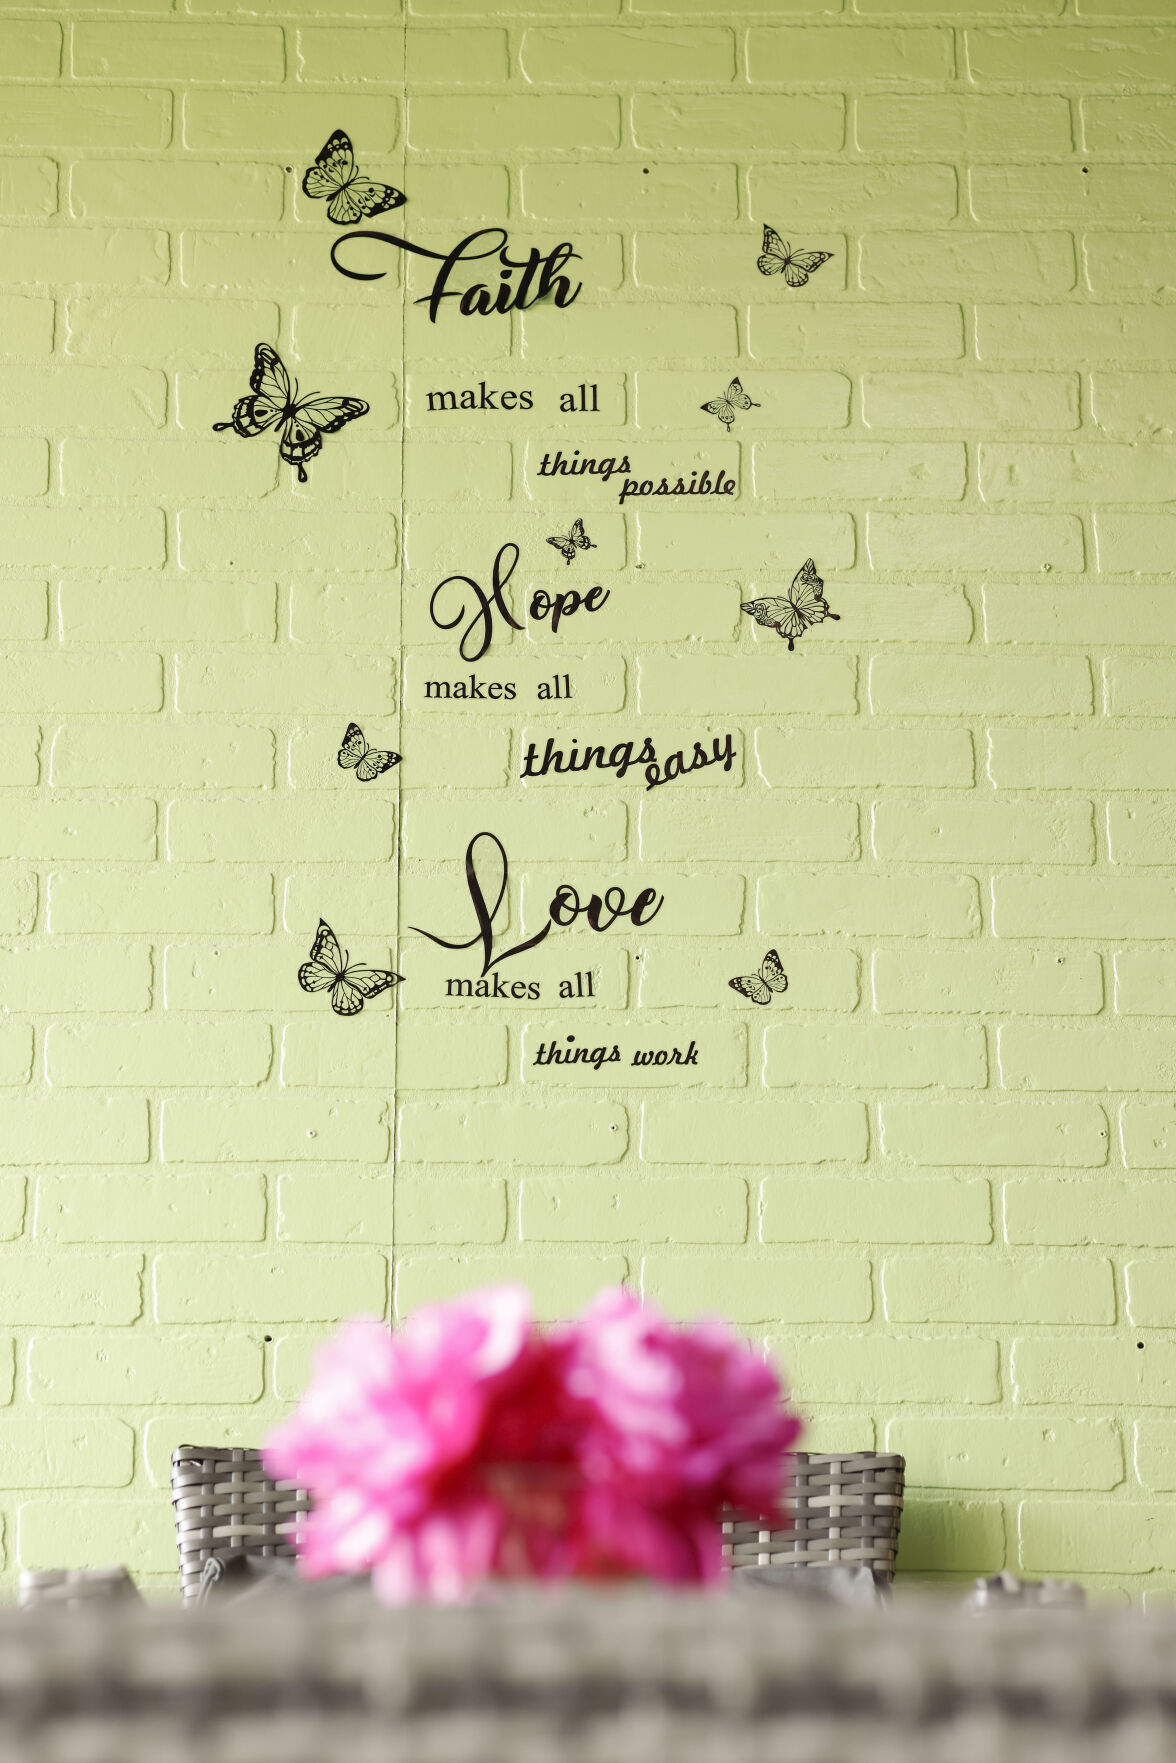 Faith
makes all
things
possible
Hope
makes all
things
easy
Love
makes all
things work